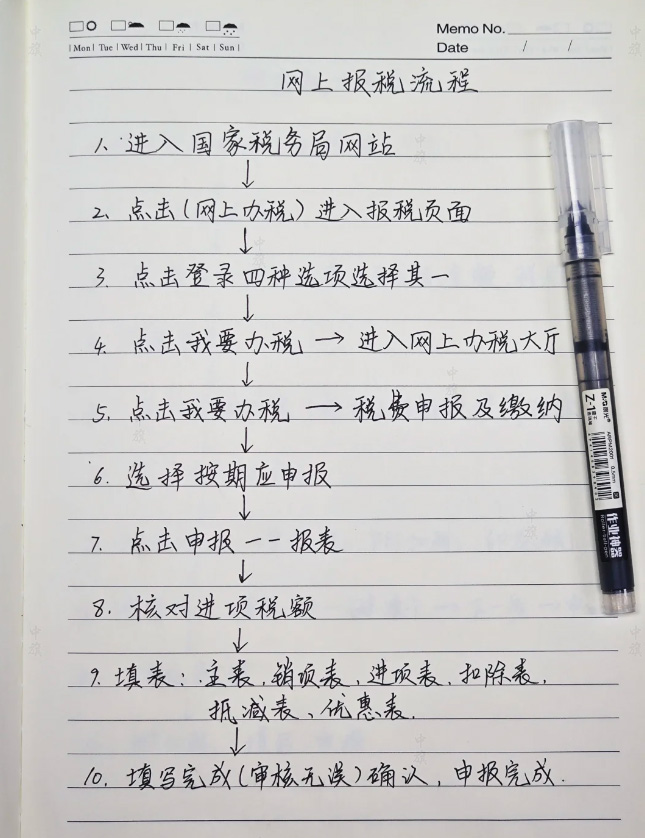 Memo No.
Mon Tue Wed Thu Fri Sat Sun
Date / /
网上报税流程
1. 进入国家税务局网站
↓
2. 点击(网上办税)进入报税页面
↓
3. 点击登录四种选项选择其一
↓
4. 点击我要办税 → 进入网上办税大厅
↓
5. 点击我要办税 → 税费申报及缴纳
↓
6. 选择按期应申报
↓
7. 点击申报一一报表
↓
8. 核对进项税额
↓
9. 填表: 主表、销项表、进项表、扣除表、
抵减表、优惠表.
↓
10. 填写完成(审核无误)确认, 申报完成.
M&G 晨光
Z-1
0.5mm
作业神器